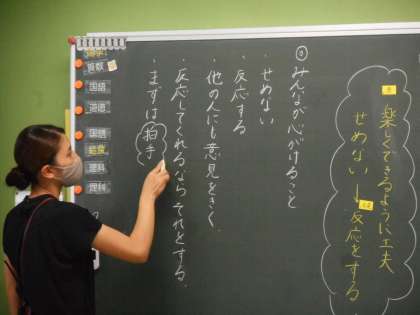 楽しくできるように工夫
せめない → 反応をする
◎ みんなが心がけること
・せめない
・反応する
・他の人にも意見をきく。
・反応してくれるならそれとする。
・まずは拍手
算数
国語
英語
国語
給食
理科
理科